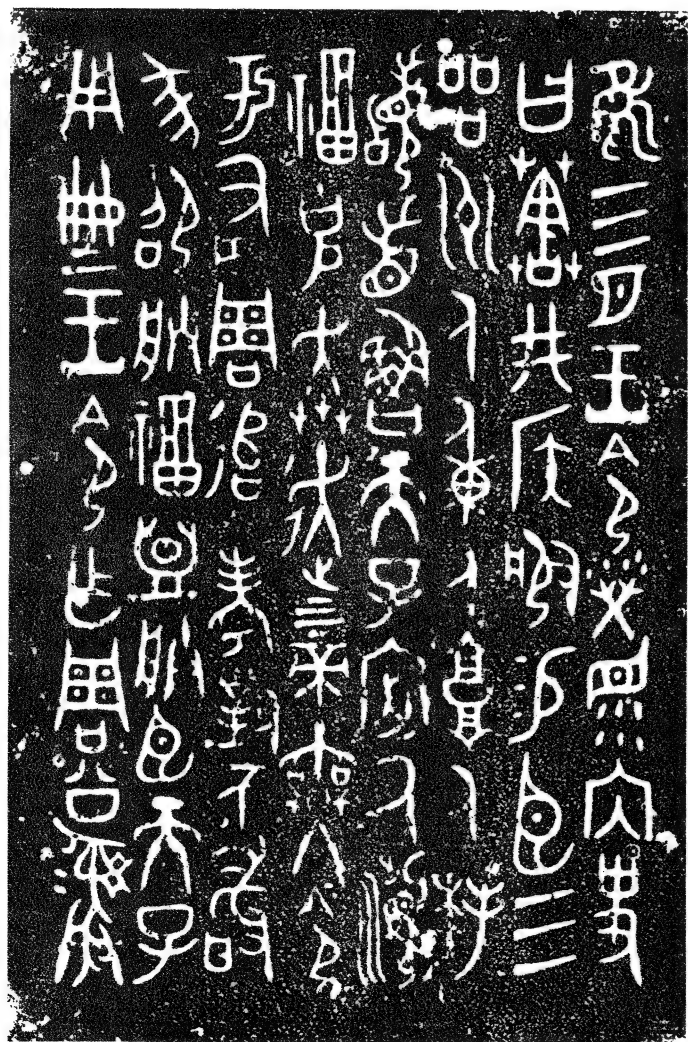 隹三月王令𤇾眔內史
曰𦵯井𥎦服易臣三
品州人重人𩫏人拜
𩒨首魯天子厥瀕
福克奔走上下帝無冬令
于有周追考對不敢
㒸卲朕福盟朕臣天子
用典王令乍周公彝